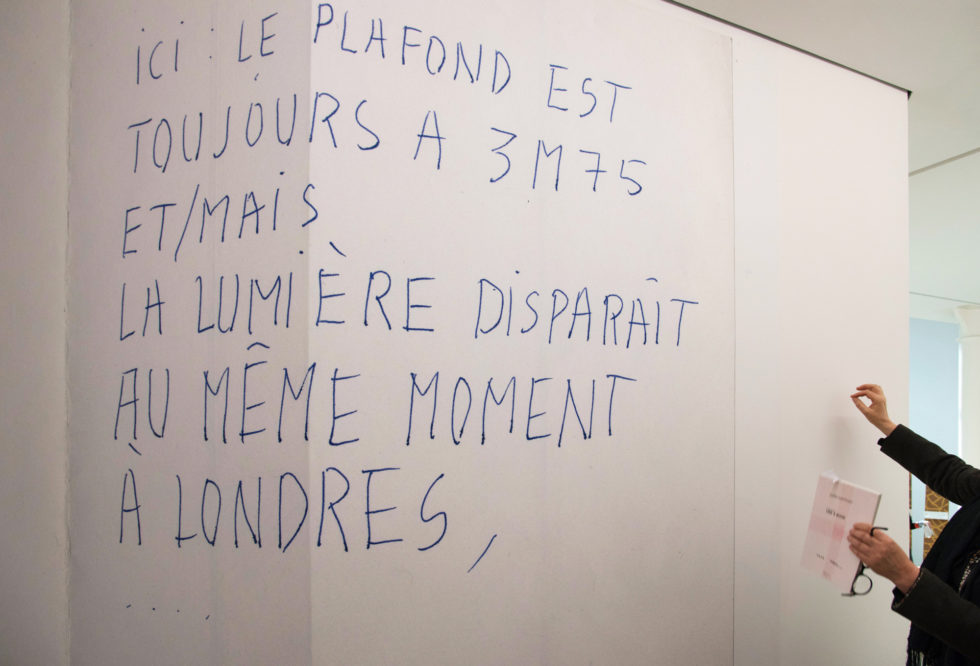 ici : LE PLAFOND EST
TOUJOURS A 3M75
ET/MAIS
LA LUMIÈRE DISPARAÎT
AU MÊME MOMENT
À LONDRES,
.....,